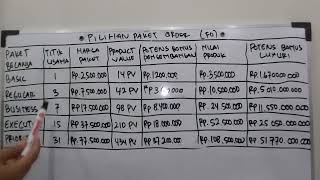 • PILIHAN PAKET ORDER (FO) •
PAKET BELANJA TITIK USAHA HARGA PAKET PRODUCT VALUE POTENSI BONUS PENGEMBANGAN NILAI PRODUK POTENSI BONUS LUXURI
BASIC 1 Rp.2500.000 14 PV Rp.1200.000 Rp.3500.000 Rp.1.670.000
REGULAR 3 Rp.7500.000 42 PV Rp.3.600.000 Rp.10.500.000 Rp.5.010.000
BUSINESS 7 Rp.17.500.000 98 PV Rp.8400.000 Rp.24.500.000 Rp.11.550.000.000
EXECUT 15 Rp.37.500.000 210 PV Rp.18.000.000 Rp.52.500.000 Rp.25.050.000
PRIO 31 Rp.77.500.000 434 PV Rp.37.200.00 Rp.108.500.000 Rp.51.770.000.000